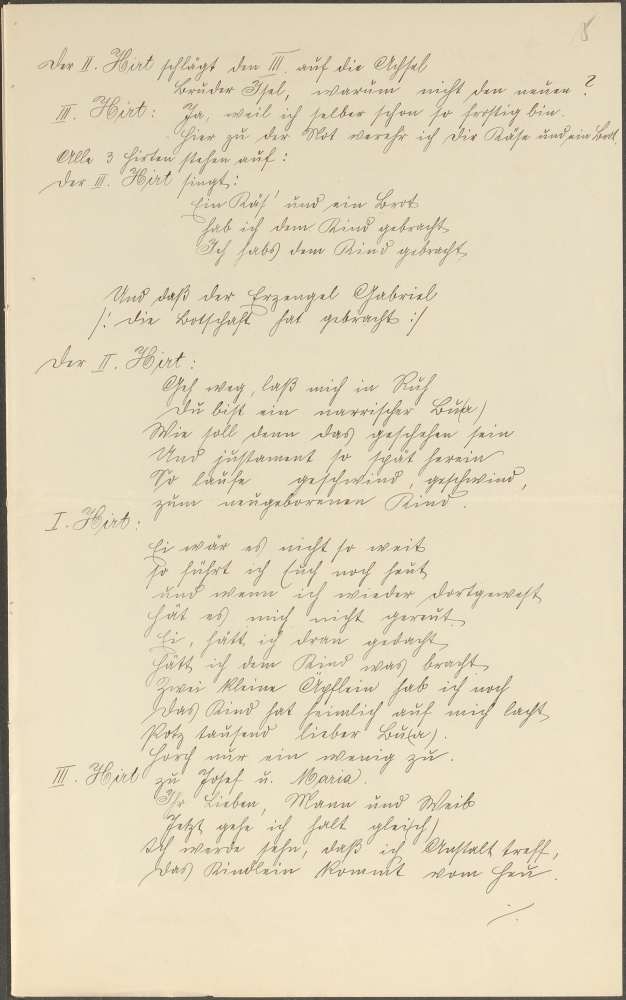 8
Der II. Hirt schlägt den III. auf die Achsel
Bruder Isel, warum nicht den neuen?
III. Hirt: Ja, weil ich selber schon so frostig bin.
Hier zu der Not verehr ich Dir Käse und ein Brot
Alle 3 Hirten stehen auf:
Der III. Hirt singt:
Ein Käs' und ein Brot
hab ich dem Kind gebracht
Ich habs dem Kind gebracht
Und daß der Erzengel Gabriel
/: die Botschaft hat gebracht :/
Der II. Hirt:
Geh weg, laß mich in Ruh
Du bist ein narrischer Bu(a)
Wie soll denn das geschehen sein
Und justament so spät herein
So laufe geschwind, geschwind,
zum neugeborenen Kind.
I. Hirt:
Ei wär es nicht so weit
so führt ich Euch noch heut
und wenn ich wieder dortgewest
hät es mich nicht gereut.
Ei, hätt ich dran gedacht
hätt ich dem Kind was bracht
Zwei kleine Äpflein hab ich noch
Das Kind hat heimlich auf mich lacht
Potz tausend lieber Bu(a).
Horch nur ein wenig zu.
III. Hirt zu Josef u. Maria.
Ihr Lieben, Mann und Weib
Jetzt gehe ich halt gleich)
Ich werde sehn, daß ich Anstalt treff,
das Kindlein kommt vom Heu.
./.